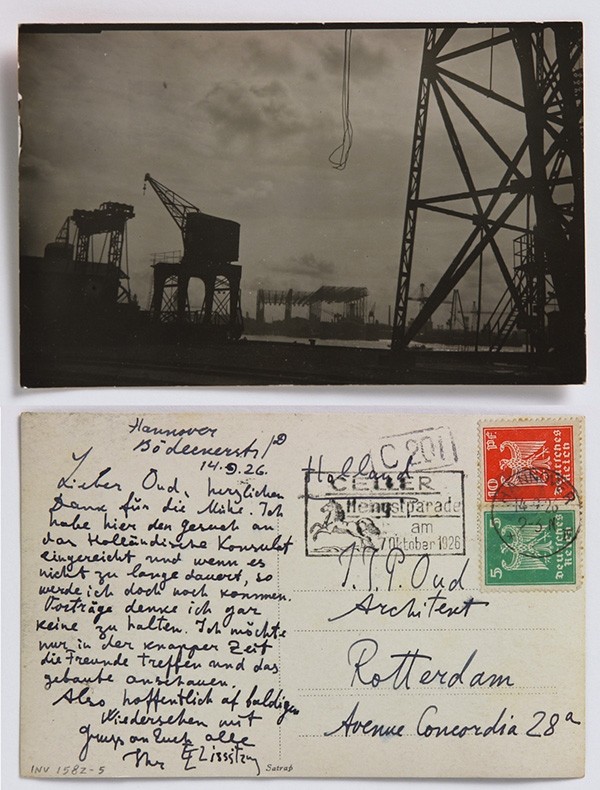 Hannover
Bödeenerstr 1D
14.9.26.
Lieber Oud, herzlichen
Dank für die Mühe. Ich
habe hier den gesuch an
das Holländische Konsulat
eingereicht und wenn es
nicht zu lange dauert, so
werde ich doch noch kommen.
Vorträge denke ich gar
keine zu halten. Ich möchte
nur in der knapper Zeit
die Freunde treffen und das
gebaute anschauen.
Also hoffentlich af baldigen
Wiedersehen mit
gruss an Euch alle
Ihr El Lissitzky
INV 1582-5
Satrap
C 201
Holland
CELLER
Hengstparade
am
7. Oktober 1926
J.J.P. Oud
Architekt
Rotterdam
Avenue Concordia 28a
10 PF.
Deutsches
Reich
5
Deutsches
Reich